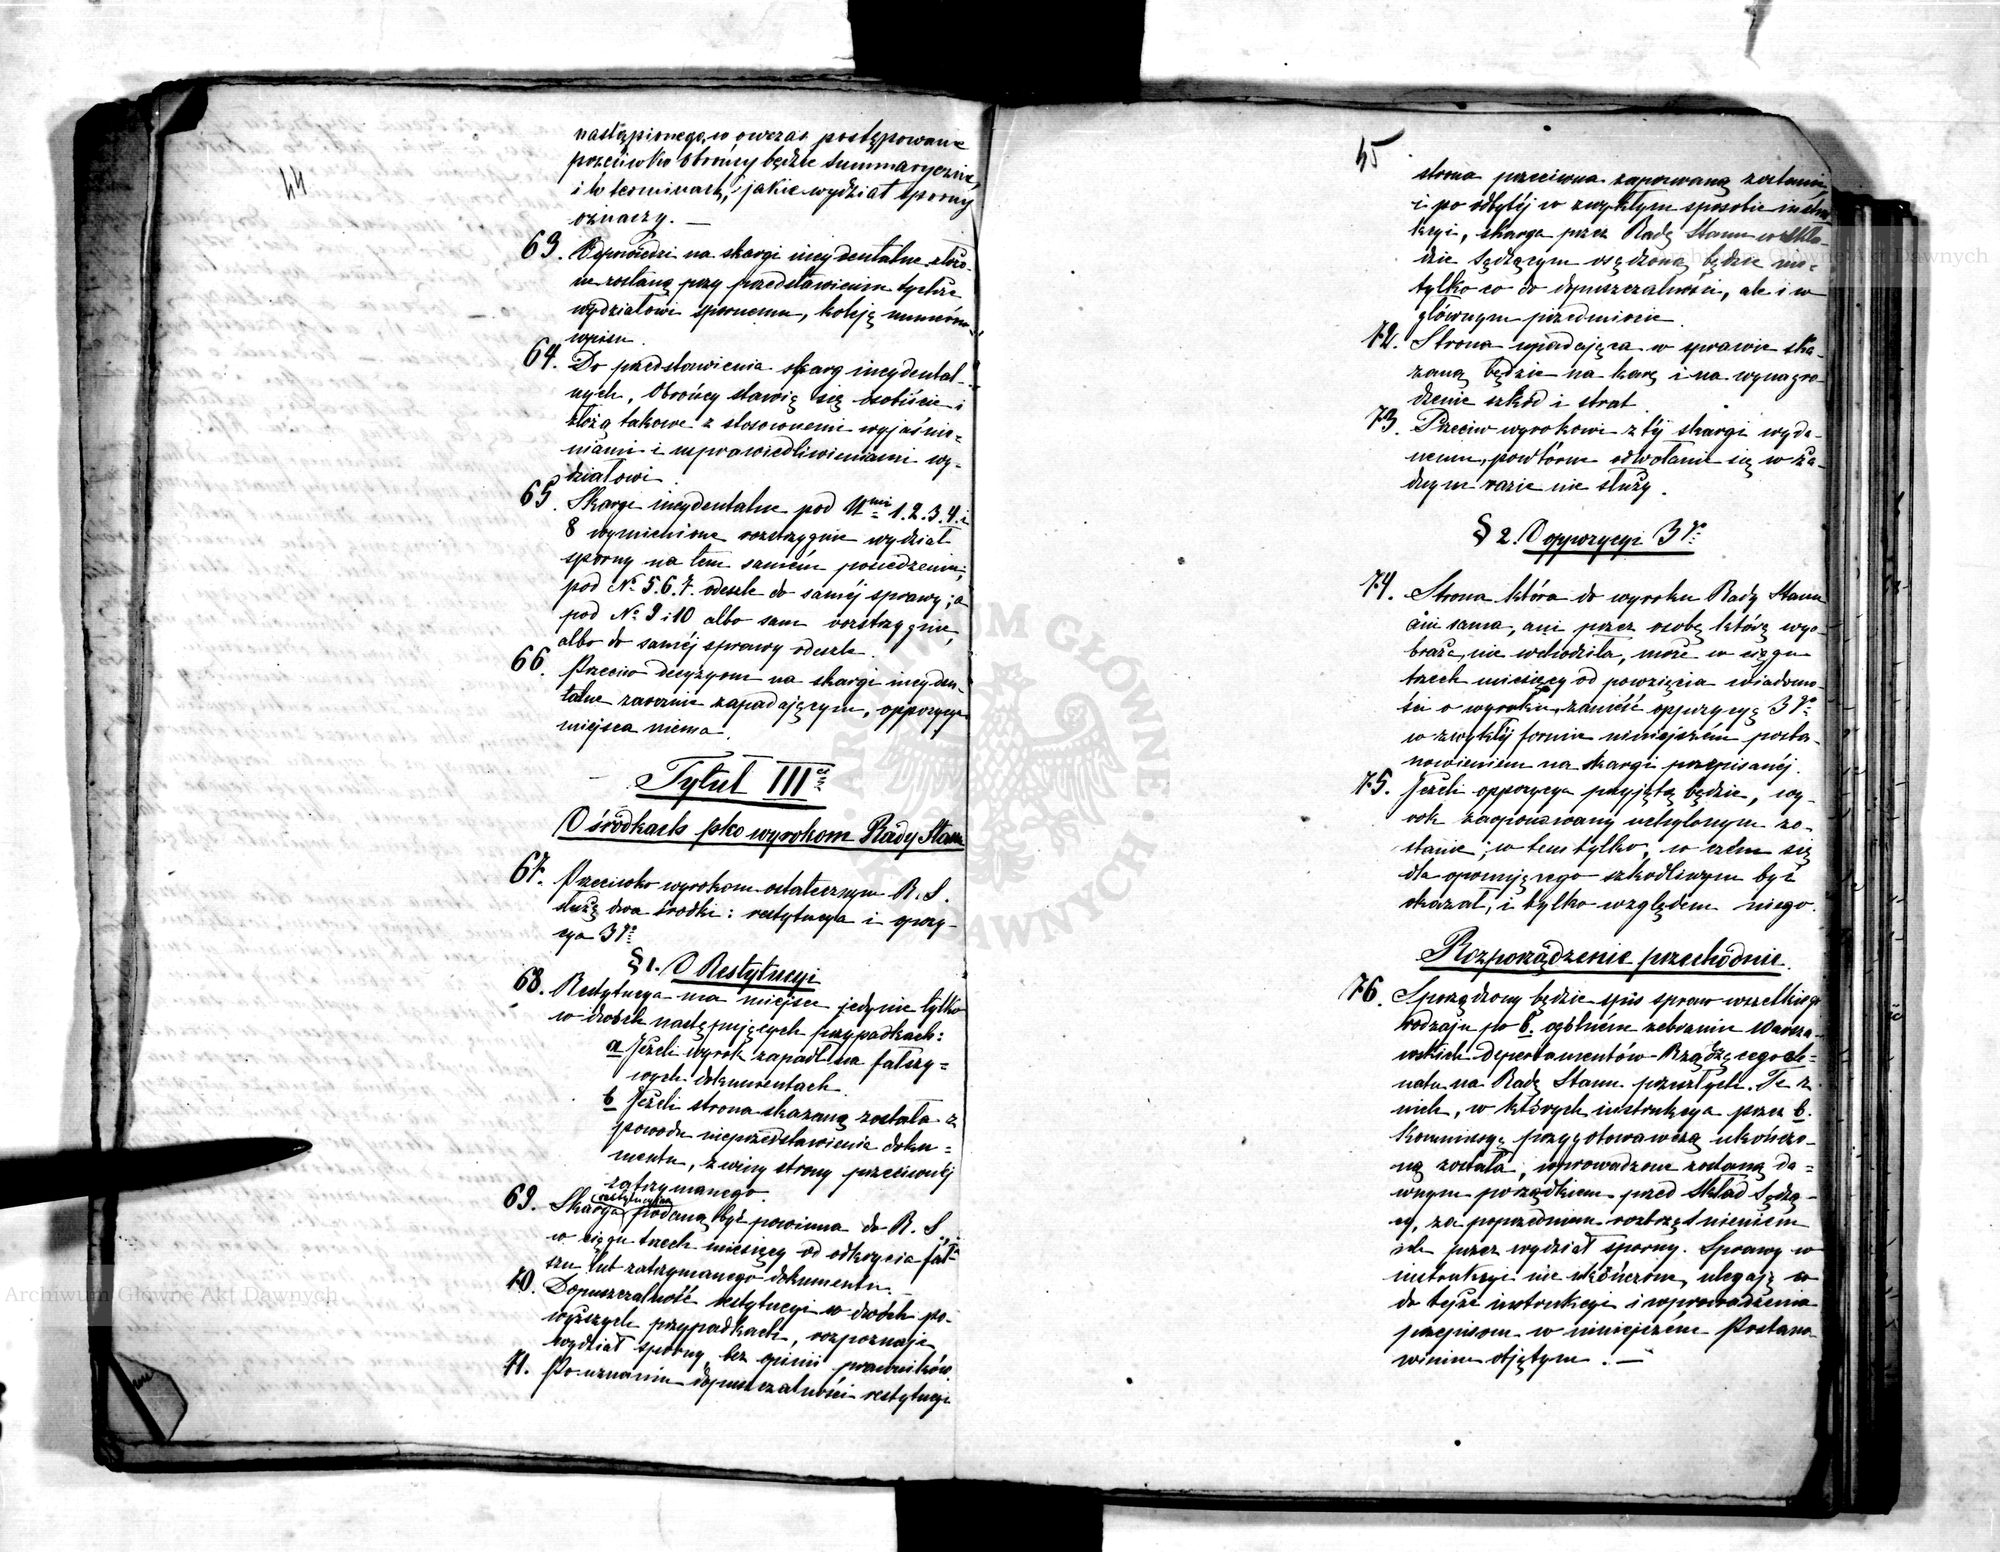 44
nastąpionego, w owczas postępowanie
przeciwko obrońcy będzie summaryczne,
i w terminach, jakie wydział sporny
oznaczy. —
63. Odpowiedzi na skargi incydentalne złożo-
ne zostaną przy przedstawieniu tychże
wydziałowi spornemu, koleją numeru
wpisu.
64. Do przedstawienia skarg incydental-
nych, Obrońcy stawią się osobiście i
złożą takowe z stosownemi wyjaśnie-
niami i usprawiedliwieniami wy-
działowi.
65. Skargi incydentalne pod Nmi 1. 2. 3. 4. i
8 wymienione rozstrzygnie wydział
sporny na tem samém posiedzeniu,
pod No 5. 6. 7. odeszle do samej sprawy; a
pod No 9 i 10 albo sam rozstrzygnie,
albo do saméj sprawy odeszle.
66. Przeciw decyzyom na skargi incyden-
talne zaocznie zapadającym, oppozycya
miejsca niema.
Tytuł III
O środkach pko wyrokom Rady Stanu
67. Przeciwko wyrokom ostatecznym R. S.
służą dwa środki: restytucya i opozy-
cya 3go
§ 1. O Restytucyi
68. Restytucya ma miejsce jedynie tylko
w dwóch następujących przypadkach:
a Jeżeli wyrok zapadł na fałszy-
wych dokumentach.
b Jeżeli strona skazaną została z
powodu nieprzedstawienia doku-
mentu, z winy strony przeciwnéj
zatrzymanego.
69. Skarga restytucyjna podaną być powinna do R. S.
w ciągu trzech miesięcy od odkrycia fał-
szu lub zatrzymanego dokumentu.
70. Dopuszczalność restytucyi w dwóch po-
wyższych przypadkach, rozpoznaje
wydział sporny, bez opinii prawników.
71. Po uznaniu dopuszczalności restytucyi
45
strona przeciwna zapozwaną zostanie,
i po odbytéj w zwykłym sposobie instru-
kcyi, skarga przez Radę Stanu w Skła-
dzie Sądzącym osądzoną będzie nie-
tylko co do dopuszczalności, ale i w
głównym przedmiocie.
72. Strona upadająca w sprawie ska-
zaną będzie na karę i na wynagro-
dzenie szkód i strat.
73. Przeciw wyrokowi z téj skargi wyda-
nemu, powtórne odwołanie się w ża-
dnym razie nie służy.
§ 2. O oppozycyi 3go
74. Strona która do wyroku Rady Stanu
ani sama, ani przez osobę którą wyo-
braża, nie wchodziła, może w ciągu
trzech miesięcy od powzięcia wiadomo-
ści o wyroku, zanieść oppozycyę 3go
w zwykłéj formie niniejszem posta-
nowieniem na skargi przepisanéj.
75. Jeżeli oppozycya przyjętą będzie, wy-
rok zaopponowany uchylonym zo-
stanie; w tem tylko, w czem się
dla oponującego szkodliwym być
okazał, i tylko względem niego.
Rozporządzenie przechodnie.
76. Sporządzony będzie spis spraw wszelkiego
rodzaju po b. ogólném zebraniu Warsza-
wskich Departamentów Rządzącego Se-
natu na Radę Stanu przeszłych. Te z
nich, w których instrukcya przez b.
Kommissyę przygotowawczą ukończo-
ną została, wprowadzone zostaną da-
wnym porządkiem przed Skład Sądzą-
cy, za poprzedniem roztrząśnieniem
ich przez wydział sporny. Sprawy w
instrukcyi nie ukończone, ulegają co
do tejże instrukcyi i wprowadzenia
przepisom w niniejszém Postano-
wieniu objętym. —
Archiwum Główne Akt Dawnych
Archiwum Główne Akt Dawnych
ARCHIWUM GŁÓWNE AKT DAWNYCH